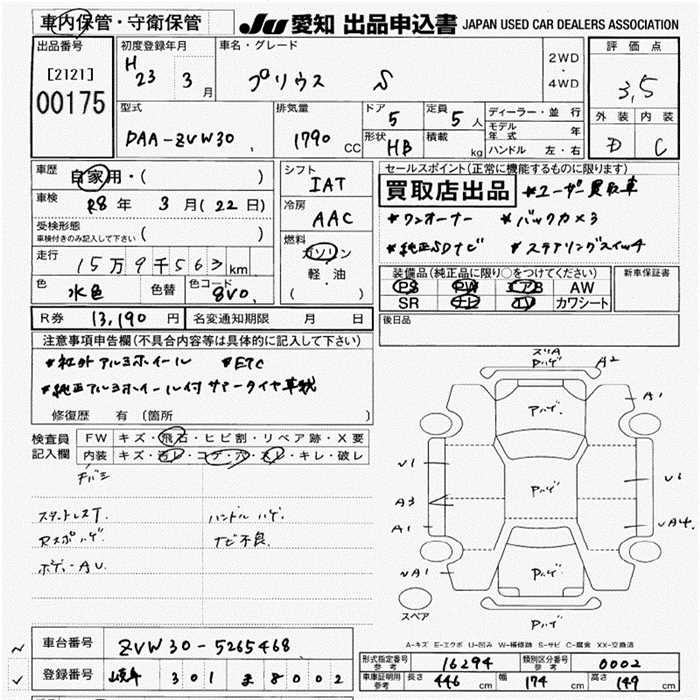 車内保管・守衛保管
JU 愛知 出品申込書 JAPAN USED CAR DEALERS ASSOCIATION
出品番号
[2121]
00175
初度登録年月
H 23 3 月
車名・グレード
プリウス S
2WD
・
4WD
評価点
3.5
外装 内装
D C
型式
DAA-ZVW30
排気量
1790 CC
ドア
5
定員
5 人
形状
HB
積載
kg
ディーラー・並行
モデル年式 年
ハンドル 左・右
車歴
自家用・( )
車検
28 年 3 月 (22 日)
受検形態
車検付きのみ記入して下さい ( )
走行
15万9千563 km
色
水色
色替
色コード
8V0
シフト
IAT
冷房
AAC
燃料
ガソリン
軽・油
( )
セールスポイント(正常に機能するものに限ります)
買取店出品 *ユーザー買取車
*ワンオーナー *バックカメラ
*純正SDナビ *ステアリングスイッチ
装備品(純正品に限り○をつけてください)
PS PW エアB AW
SR ナビ TV カワシート
新車保証書
R券 13,190 円
名変通知期限 月 日
後日品
注意事項申告欄(不具合内容等は具体的に記入して下さい)
*社外アルミホイール *ETC
*純正アルミホイール付サマータイヤ車載
修復歴 有 (箇所 )
検査員記入欄
FW キズ・飛石・ヒビ割・リペア跡・X要
内装 キズ・汚レ・コゲ・穴・スレ・キレ・破レ
スタッドレスT.
ハンドル ハゲ.
Rスポハゲ
ナビ不良.
ボディーAU.
スリA
Pハゲ
A2
A1
Pハゲ.
V1
U1
Pハゲ
A3
A1
UA4.
UA1
Pハゲ
スペア
Pハゲ.
A-キズ E-エクボ U-凹み W-補修跡 S-サビ C-腐食 XX-交換済
車台番号
ZVW30-5265468
登録番号
岐阜 301 ま 8002
形式指定番号 参考
16294
類別区分番号 参考
0002
車庫証明用 参考
長さ 446 cm 幅 174 cm 高さ 149 cm